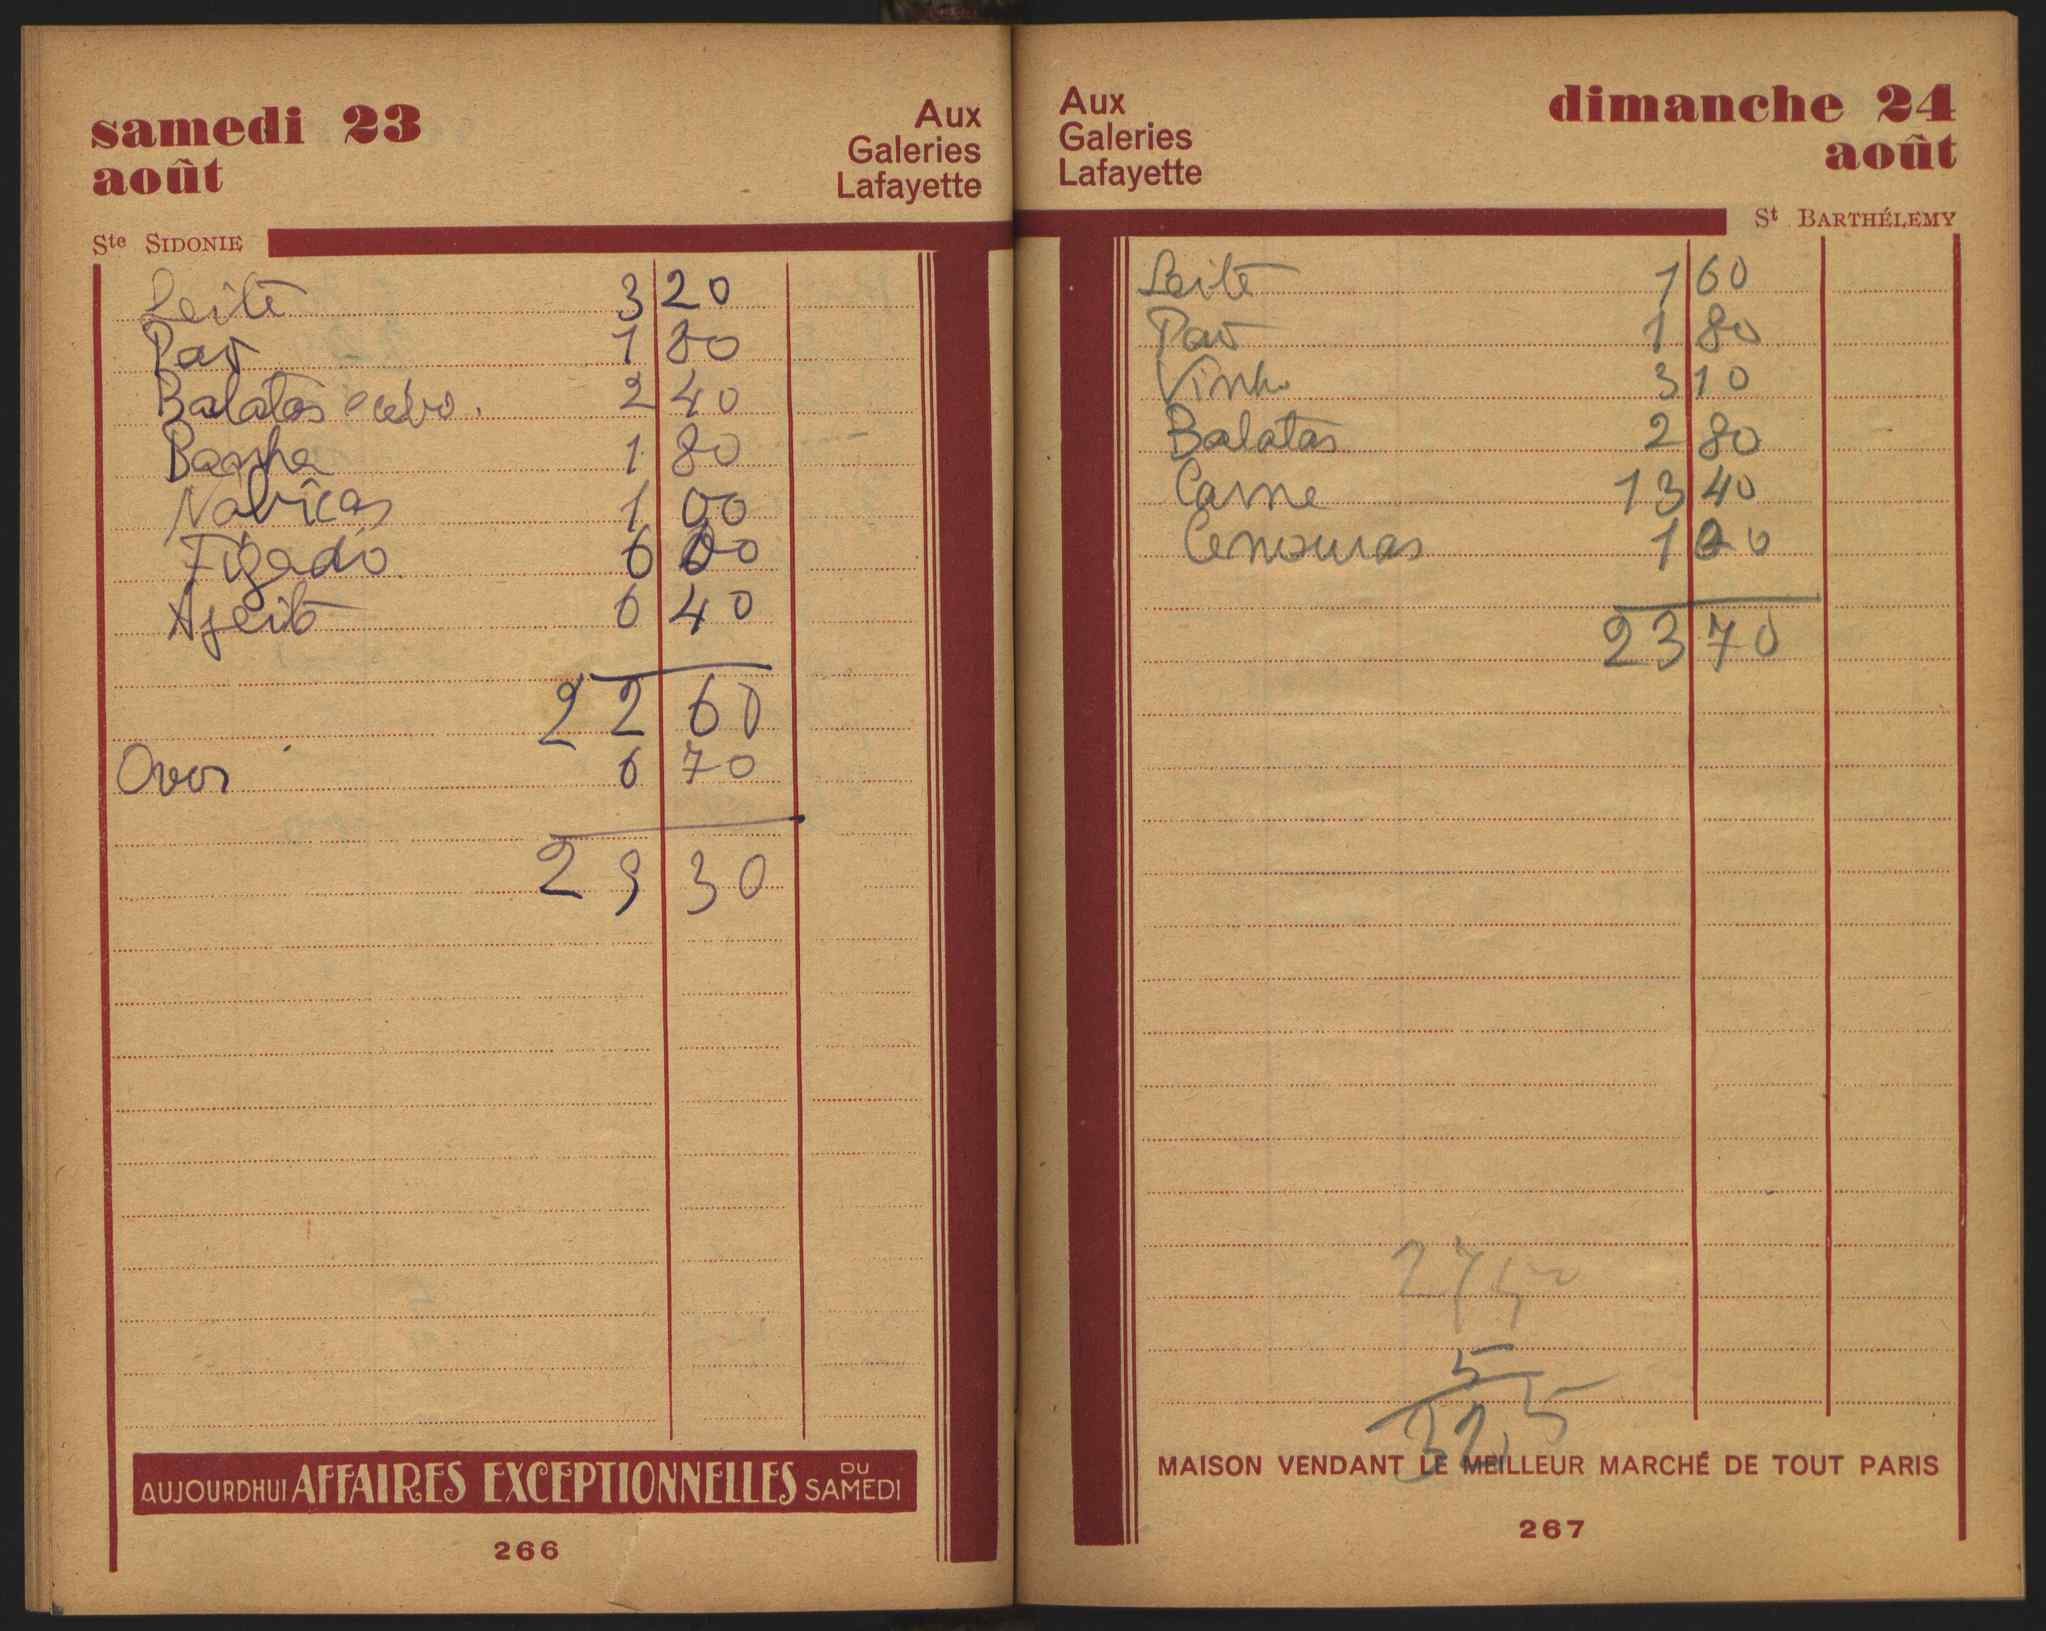 samedi 23
août
Aux
Galeries
Lafayette
Ste SIDONIE
Leite 3 20
Pão 1 80
Batatas e cebo. 2 40
Banha 1 80
Nabiças 1 00
Figado 6 00
Azeite 6 40
22 60
Ovos 6 70
29 30
AUJOURDHUI AFFAIRES EXCEPTIONNELLES DU SAMEDI
266
Aux
Galeries
Lafayette
dimanche 24
août
St BARTHÉLEMY
Leite 1 60
Pão 1 80
Vinho 3 10
Batatas 2 80
Carne 13 40
Cenouras 1 00
23 70
5
32,5
MAISON VENDANT LE MEILLEUR MARCHÉ DE TOUT PARIS
267